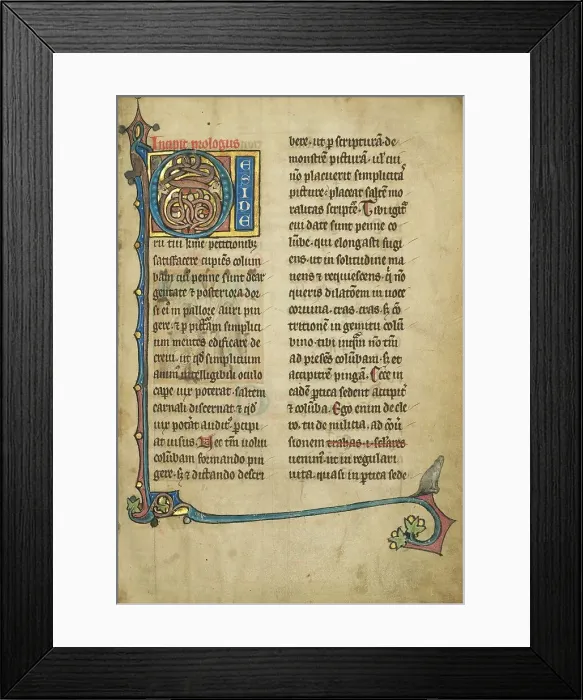 Incipit prologus
DESIDE
rii tui kmē petitionibꝫ
satisfacere cupiēs colum
bam cuiꝰ penne sunt dear
gentate ⁊ posteriora dor
si eiꝰ in pallore auri pin
gere ⁊ p pictām simplici
um mentes edificare de
creui. ut qd̓ simplicium
animꝰ intelligibili oculo
cape uix poterat. saltem
carnali discernat ⁊ qd̓
uix pot̓at auditꝰ. p̄cipi
at uisus. Nec tm̄ uolui
colūbam formando pin
gere. sꝫ ⁊ dictando descri
bere. ut p scripturā de
monstrē picturā. ut cui
nō placuerit simplicitaͣ
picture. placeat saltē mo
ralitas scripte. Tibi igit̃
cui date sunt penne co
lūbe. qui elongasti fugi
ens. ut in solitudine ma
neres ⁊ requiescens. q̇ nō
queris dilatōem in uoce
coruina. cras. cras. sꝫ cō
tritionē in gemitu colū
bino. tibi inquā nō tm̄
ad p̄sēs colūbam. sꝫ et
accipitrē pingā. Ecce in
eadē ptica sedent accipit̓
⁊ colūba. Ego enim de cle
ro. tu de militia. ad cōū
sionem
uenimꝰ. ut in regulari
uita. quasi in ptica sede